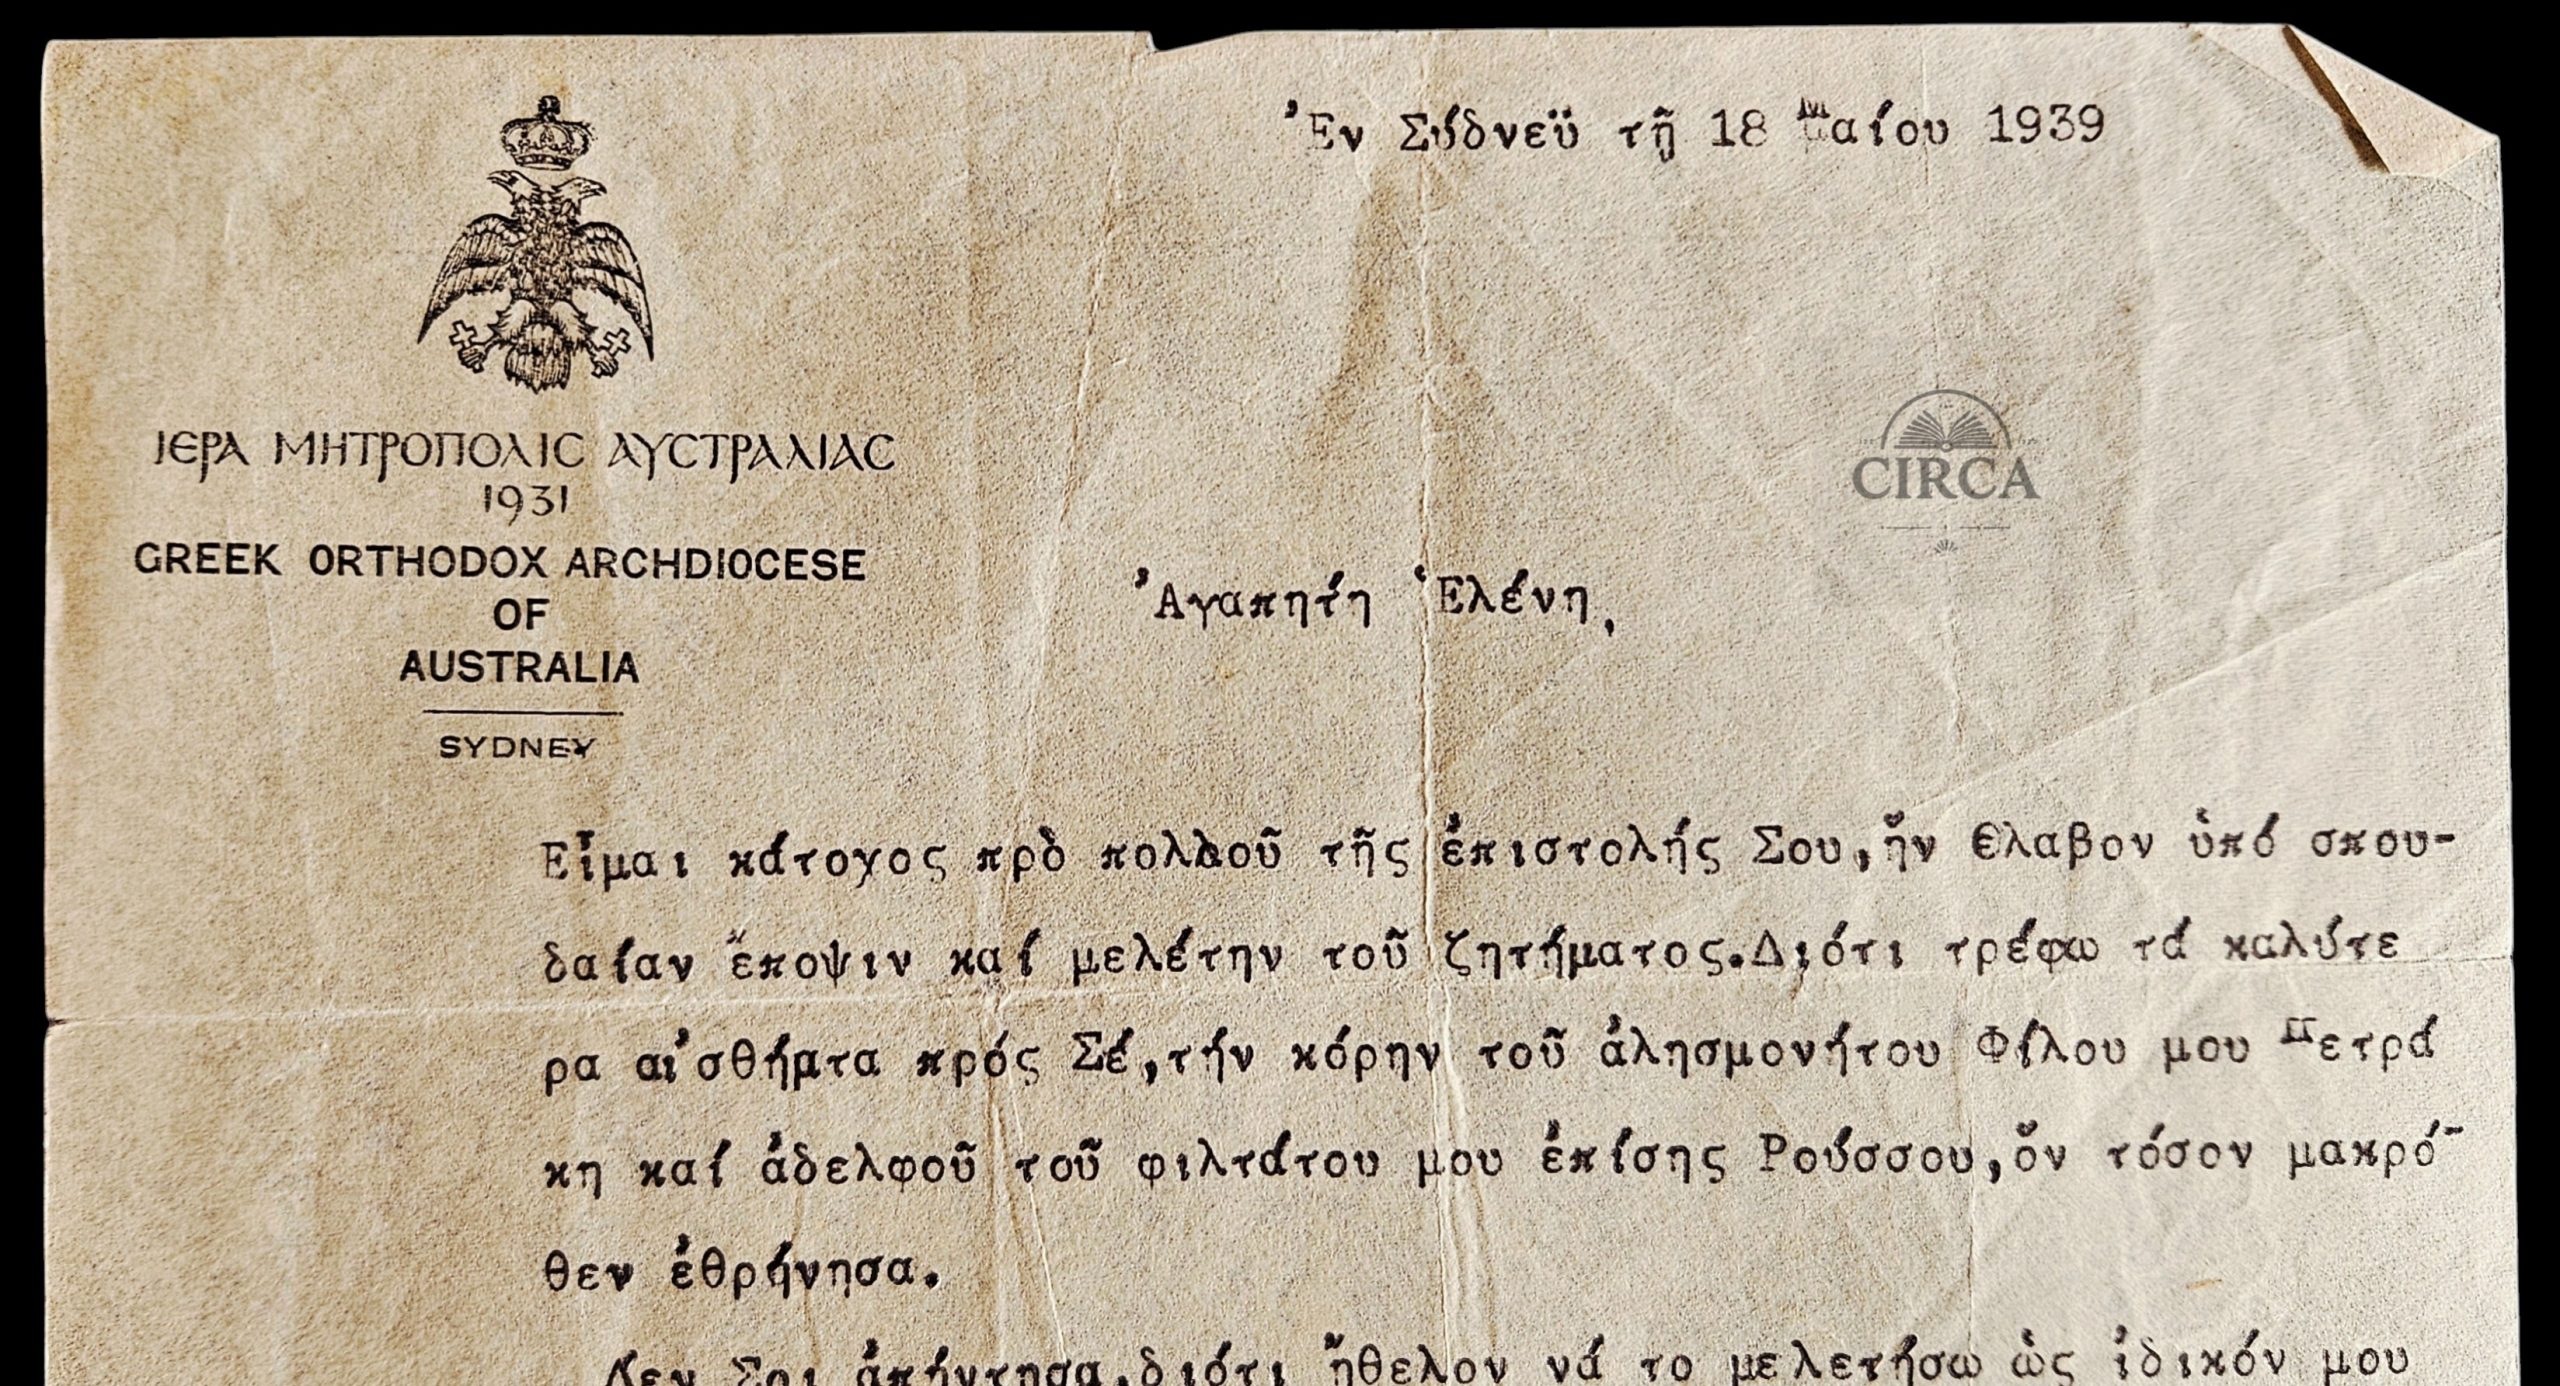 Ἐν Σύδνεϋ τῇ 18 Μαίου 1939
ΙΕΡΑ ΜΗΤΡΟΠΟΛΙС ΑΥСΤΡΑΛΙΑС
1931
GREEK ORTHODOX ARCHDIOCESE
OF
AUSTRALIA
SYDNEY
CIRCA
Ἀγαπητή Ἑλένη,
Εἶμαι κάτοχος πρὸ πολλοῦ τῆς ἐπιστολής Σου,ἥν ἔλαβον ὑπό σπου-
δαίαν ἔποψιν καί μελέτην τοῦ ζητήματος.Διότι τρέφω τά καλύτε
ρα αἰσθήματα πρός Σέ,τήν κόρην τοῦ ἀλησμονήτου Φίλου μου Πετρά
κη καί ἀδελφοῦ τοῦ φιλτάτου μου ἐπίσης Ρούσσου,ὅν τόσον μακρό-
θεν ἐθρήνησα.
Δεν Σοι ἀπήντησα,διότι ἤθελον νά το μελετήσω ὡς ἰδικόν μου